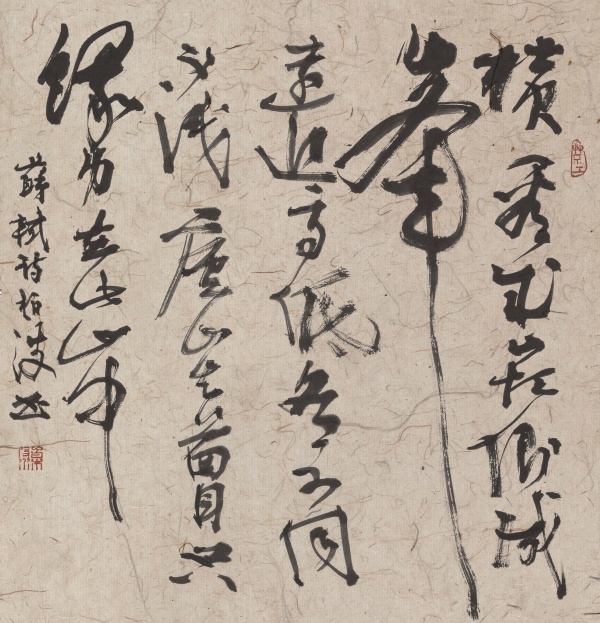 橫看成嶺側成
峯
遠近高低各不同
不識廬山真面目只
緣身在此山中
蘇軾詩